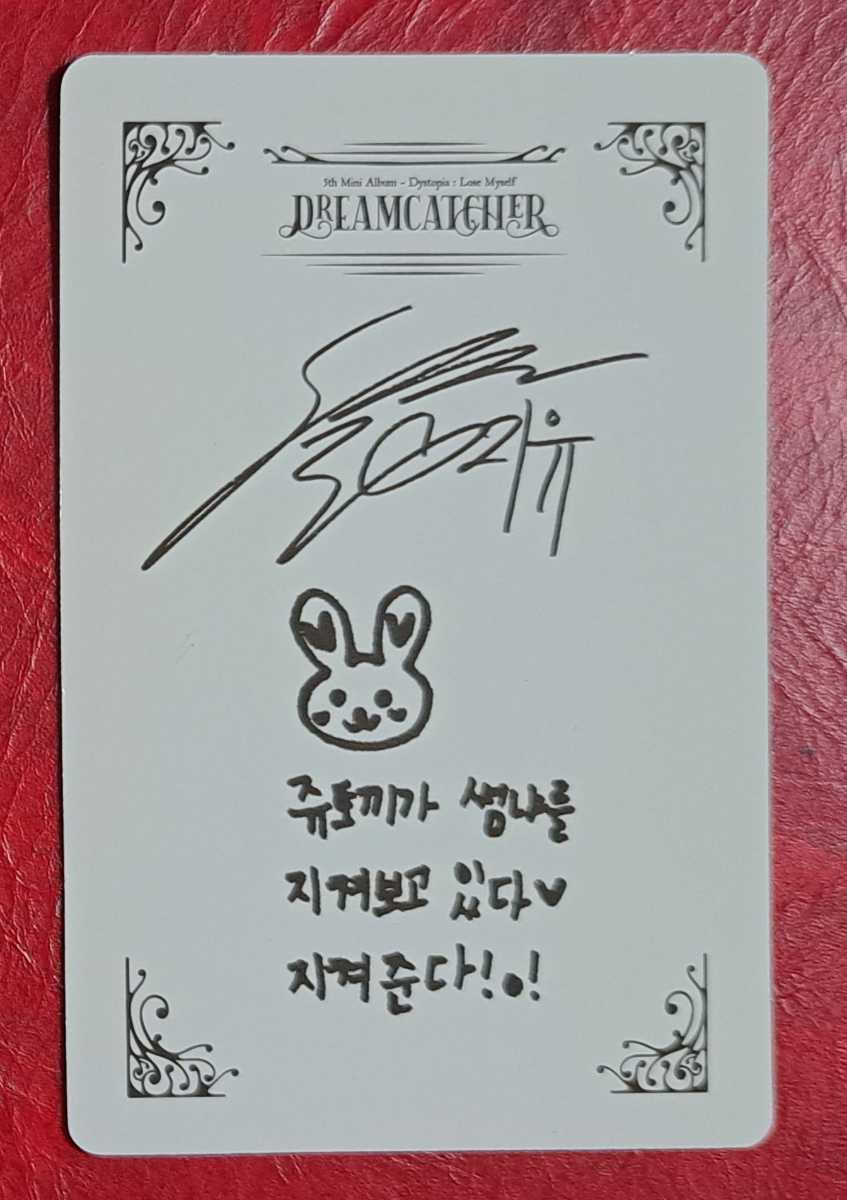 5th Mini Album - Dystopia : Lose Myself
DREAMCATCHER
지유
쥬토끼가 썸냐를
지켜보고 있다♥
지켜준다!•!